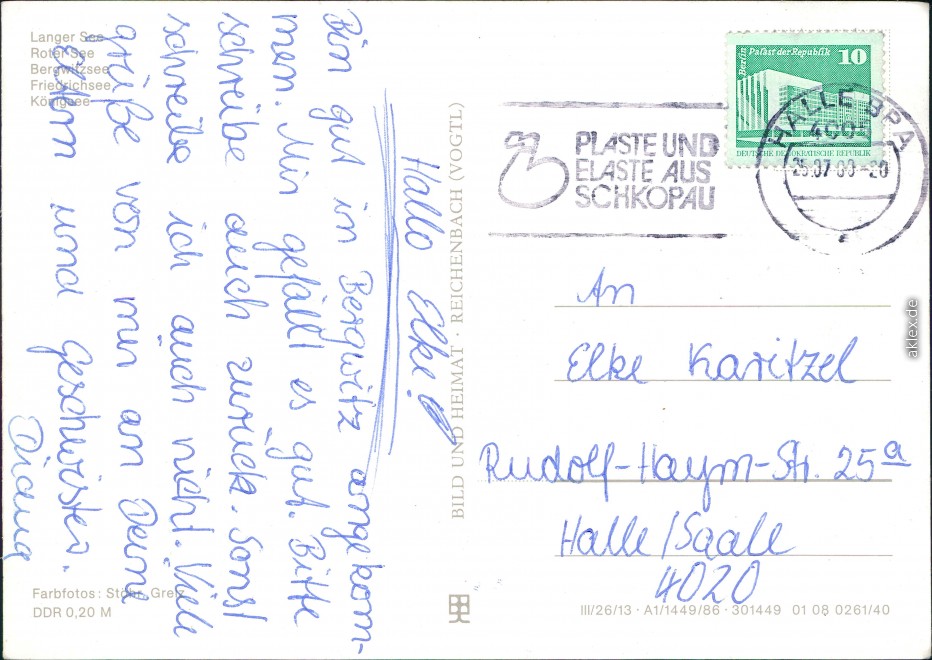 Langer See
Roter See
Bergwitzsee
Friedrichsee
Königsee
Hallo Elke!
Bin gut in Bergwitz angekom-
men. Mir gefällt es gut. Bitte
schreibe auch zurück. Sonst
schreibe ich auch nicht. Viele
grüße von mir an Deine
Eltern und Geschwister.
Diana
Farbfotos: Stöhr, Gretz
DDR 0,20 M
BILD UND HEIMAT · REICHENBACH (VOGTL)
Berlin Palast der Republik 10
DEUTSCHE DEMOKRATISCHE REPUBLIK
PLASTE UND
ELASTE AUS
SCHKOPAU
HALLE BPA
An
Elke Karitzel
Rudolf-Haym-Str. 25a
Halle/Saale
4020
III/26/13 · A1/1449/86 · 301449 01 08 0261/40
aklex.de